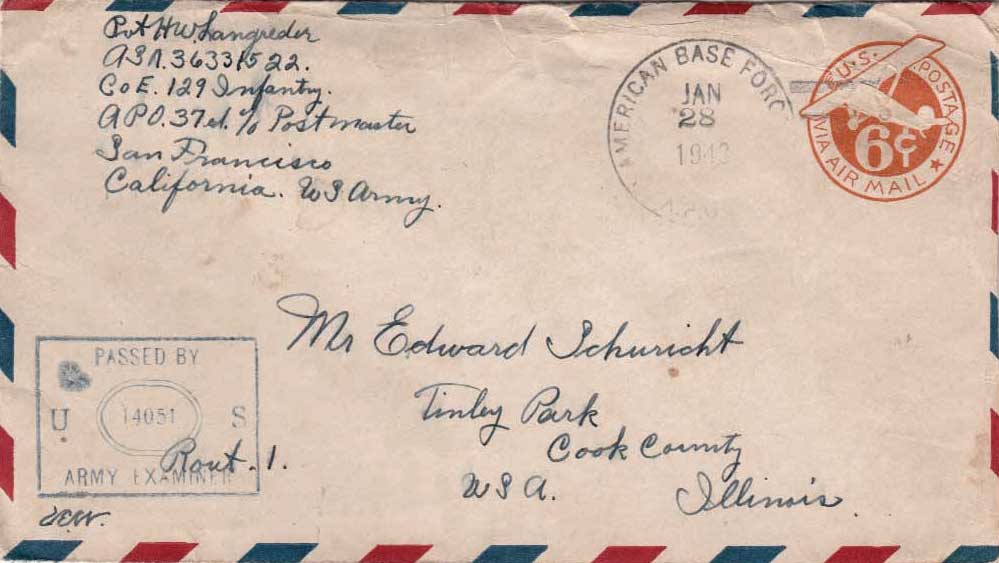 Pvt HW. Langreder
ASN. 36331522.
Co E. 129 Infantry.
APO. 37 c/o Postmaster
San Francisco
California. US Army.
AMERICAN BASE FORC
JAN
28
1943
U.S. POSTAGE
6¢
VIA AIR MAIL
Mr Edward Schuricht
Tinley Park
Cook County
USA. Illinois
PASSED BY
U 14051 S
ARMY EXAMINER
Rout. 1.